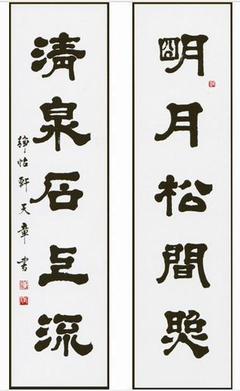 明月松間照
清泉石上流
靜怡軒天章書